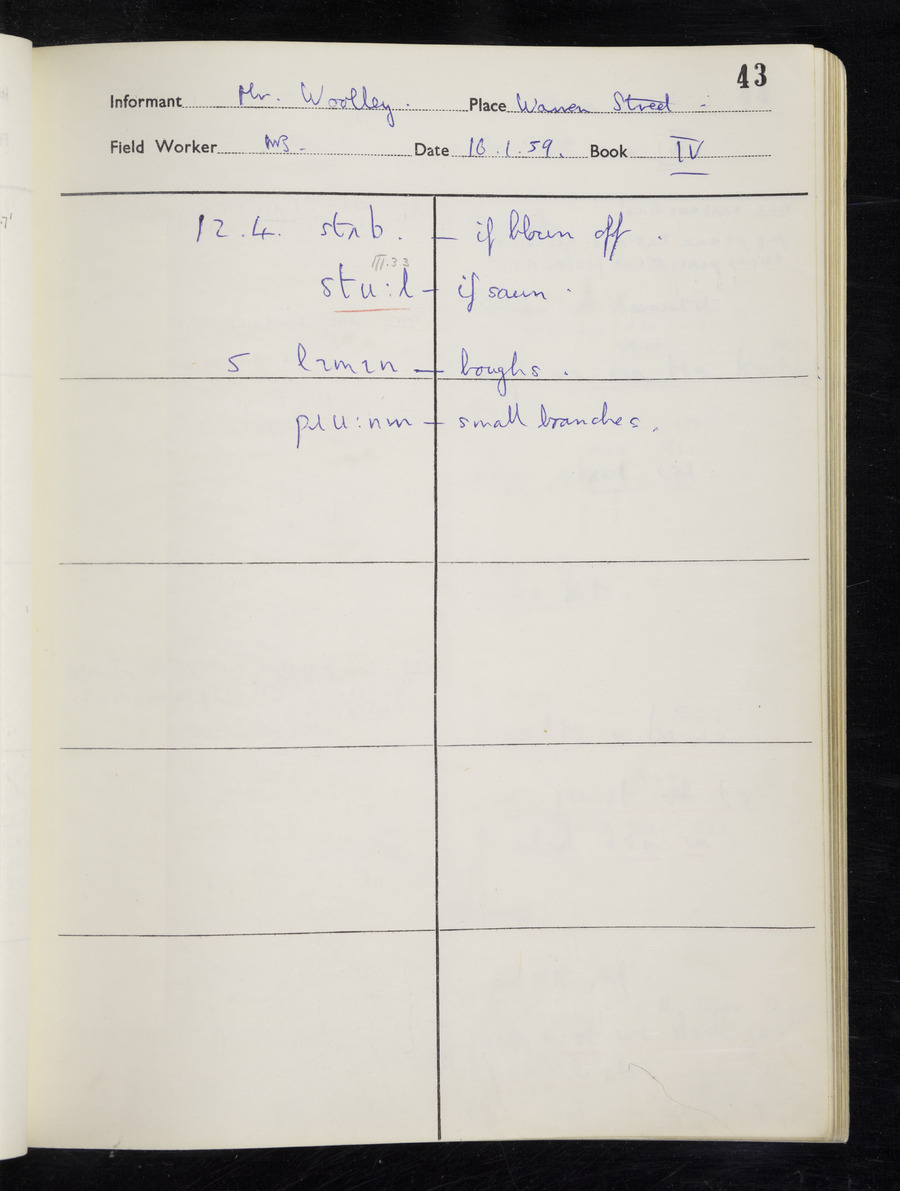 43
Informant Mr. Woolley. Place Warren Street -
Field Worker MB- Date 16.1.59. Book IV
12.4. stʌb. — if blown off.
III.3.3
stu:l — if sawn.
5 — boughs.
— small branches.